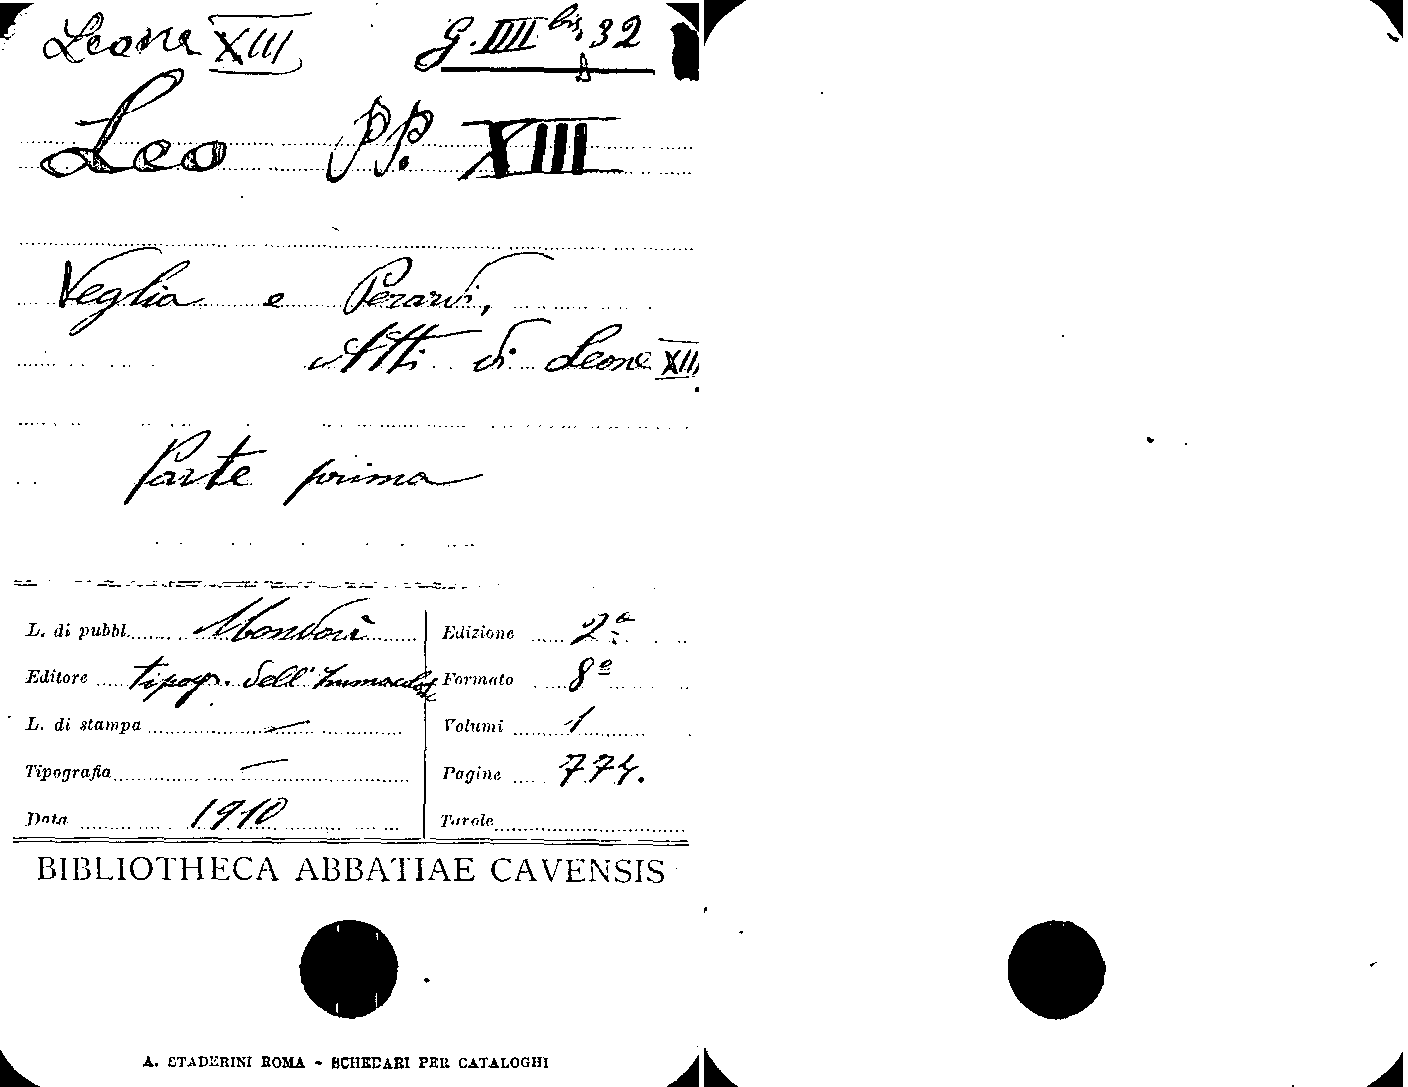 Leone XIII
Leo PP. XIII
Veglia e Perardi,
Atti di Leone XIII
Parte prima
L. di pubbl. Mondovì Edizione 2ª
Editore tipogr. dell' Immacolata Formato 8º
L. di stampa — Volumi 1
Tipografia — Pagine 774.
Data 1910 Tavole
BIBLIOTHECA ABBATIAE CAVENSIS
A. STADERINI ROMA - SCHEDARI PER CATALOGHI